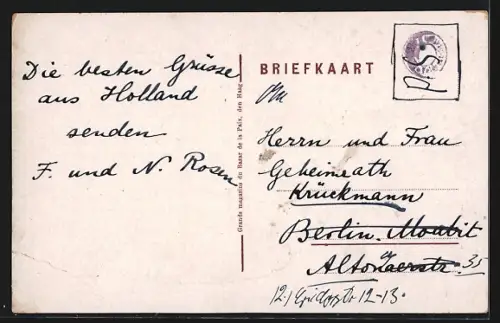 Die besten Grüsse
aus Holland
senden
F. und N. Rosen
Grands magasins du Bazar de la Paix, den Haag
BRIEFKAART
Herrn und Frau
Geheimrath
Krückmann
Berlin-Moabit
Altonaerstr. 35
12-13